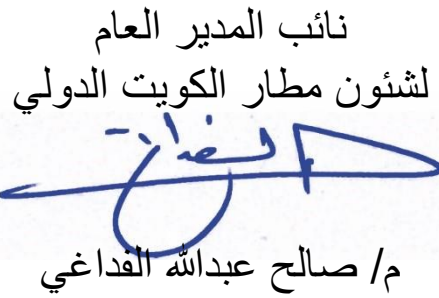 نائب المدير العام
لشئون مطار الكويت الدولي
م/ صالح عبدالله الفداغي